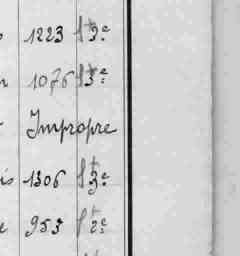 1223 f+ 3e
1076 f+ 3e
Impropre
is 1306 f+ 3e
e 953 f+ 2e